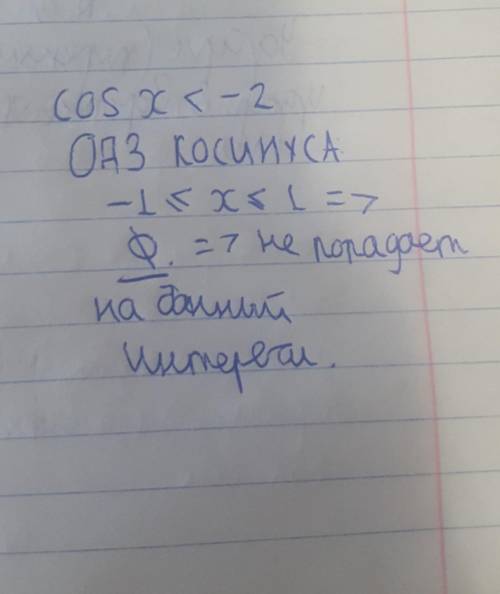 cos x < -2
ОДЗ КОСИНУСА
-1 ⩽ x ⩽ 1 =>
Ф. => не попадает
на данний
интервал.